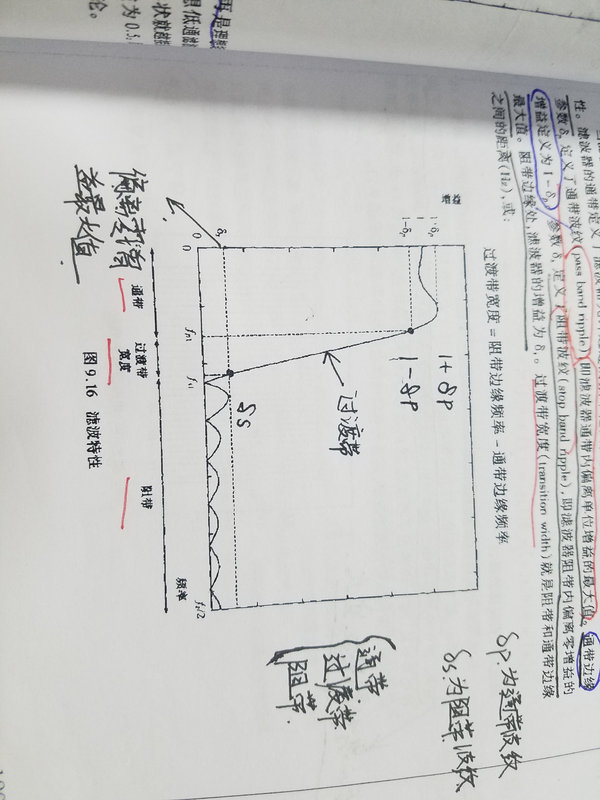 性。滤波器的通带定义了
参数δp定义了通带波纹(pass band ripple),即滤波器通带内偏离单位增益的最大值。通带边缘
增益定义为1-δp。参数δs定义了阻带波纹(stop band ripple),即滤波器阻带内偏离零增益的
最大值。阻带边缘处,滤波器的增益为δs。过渡带宽度(transition width)就是阻带和通带边缘
之间的距离(Hz),或:
过渡带宽度=阻带边缘频率-通带边缘频率
增益
1-δp
δs
0
0
1+δp
1-δp
过渡带
δs
fs/2
频率
通带
过渡带
宽度
阻带
图 9.16 滤波特性
益最大值
δp为通带波纹
δs为阻带波纹
通带
过渡带
阻带
再是理
想低通滤
状就越
为0.5
论。